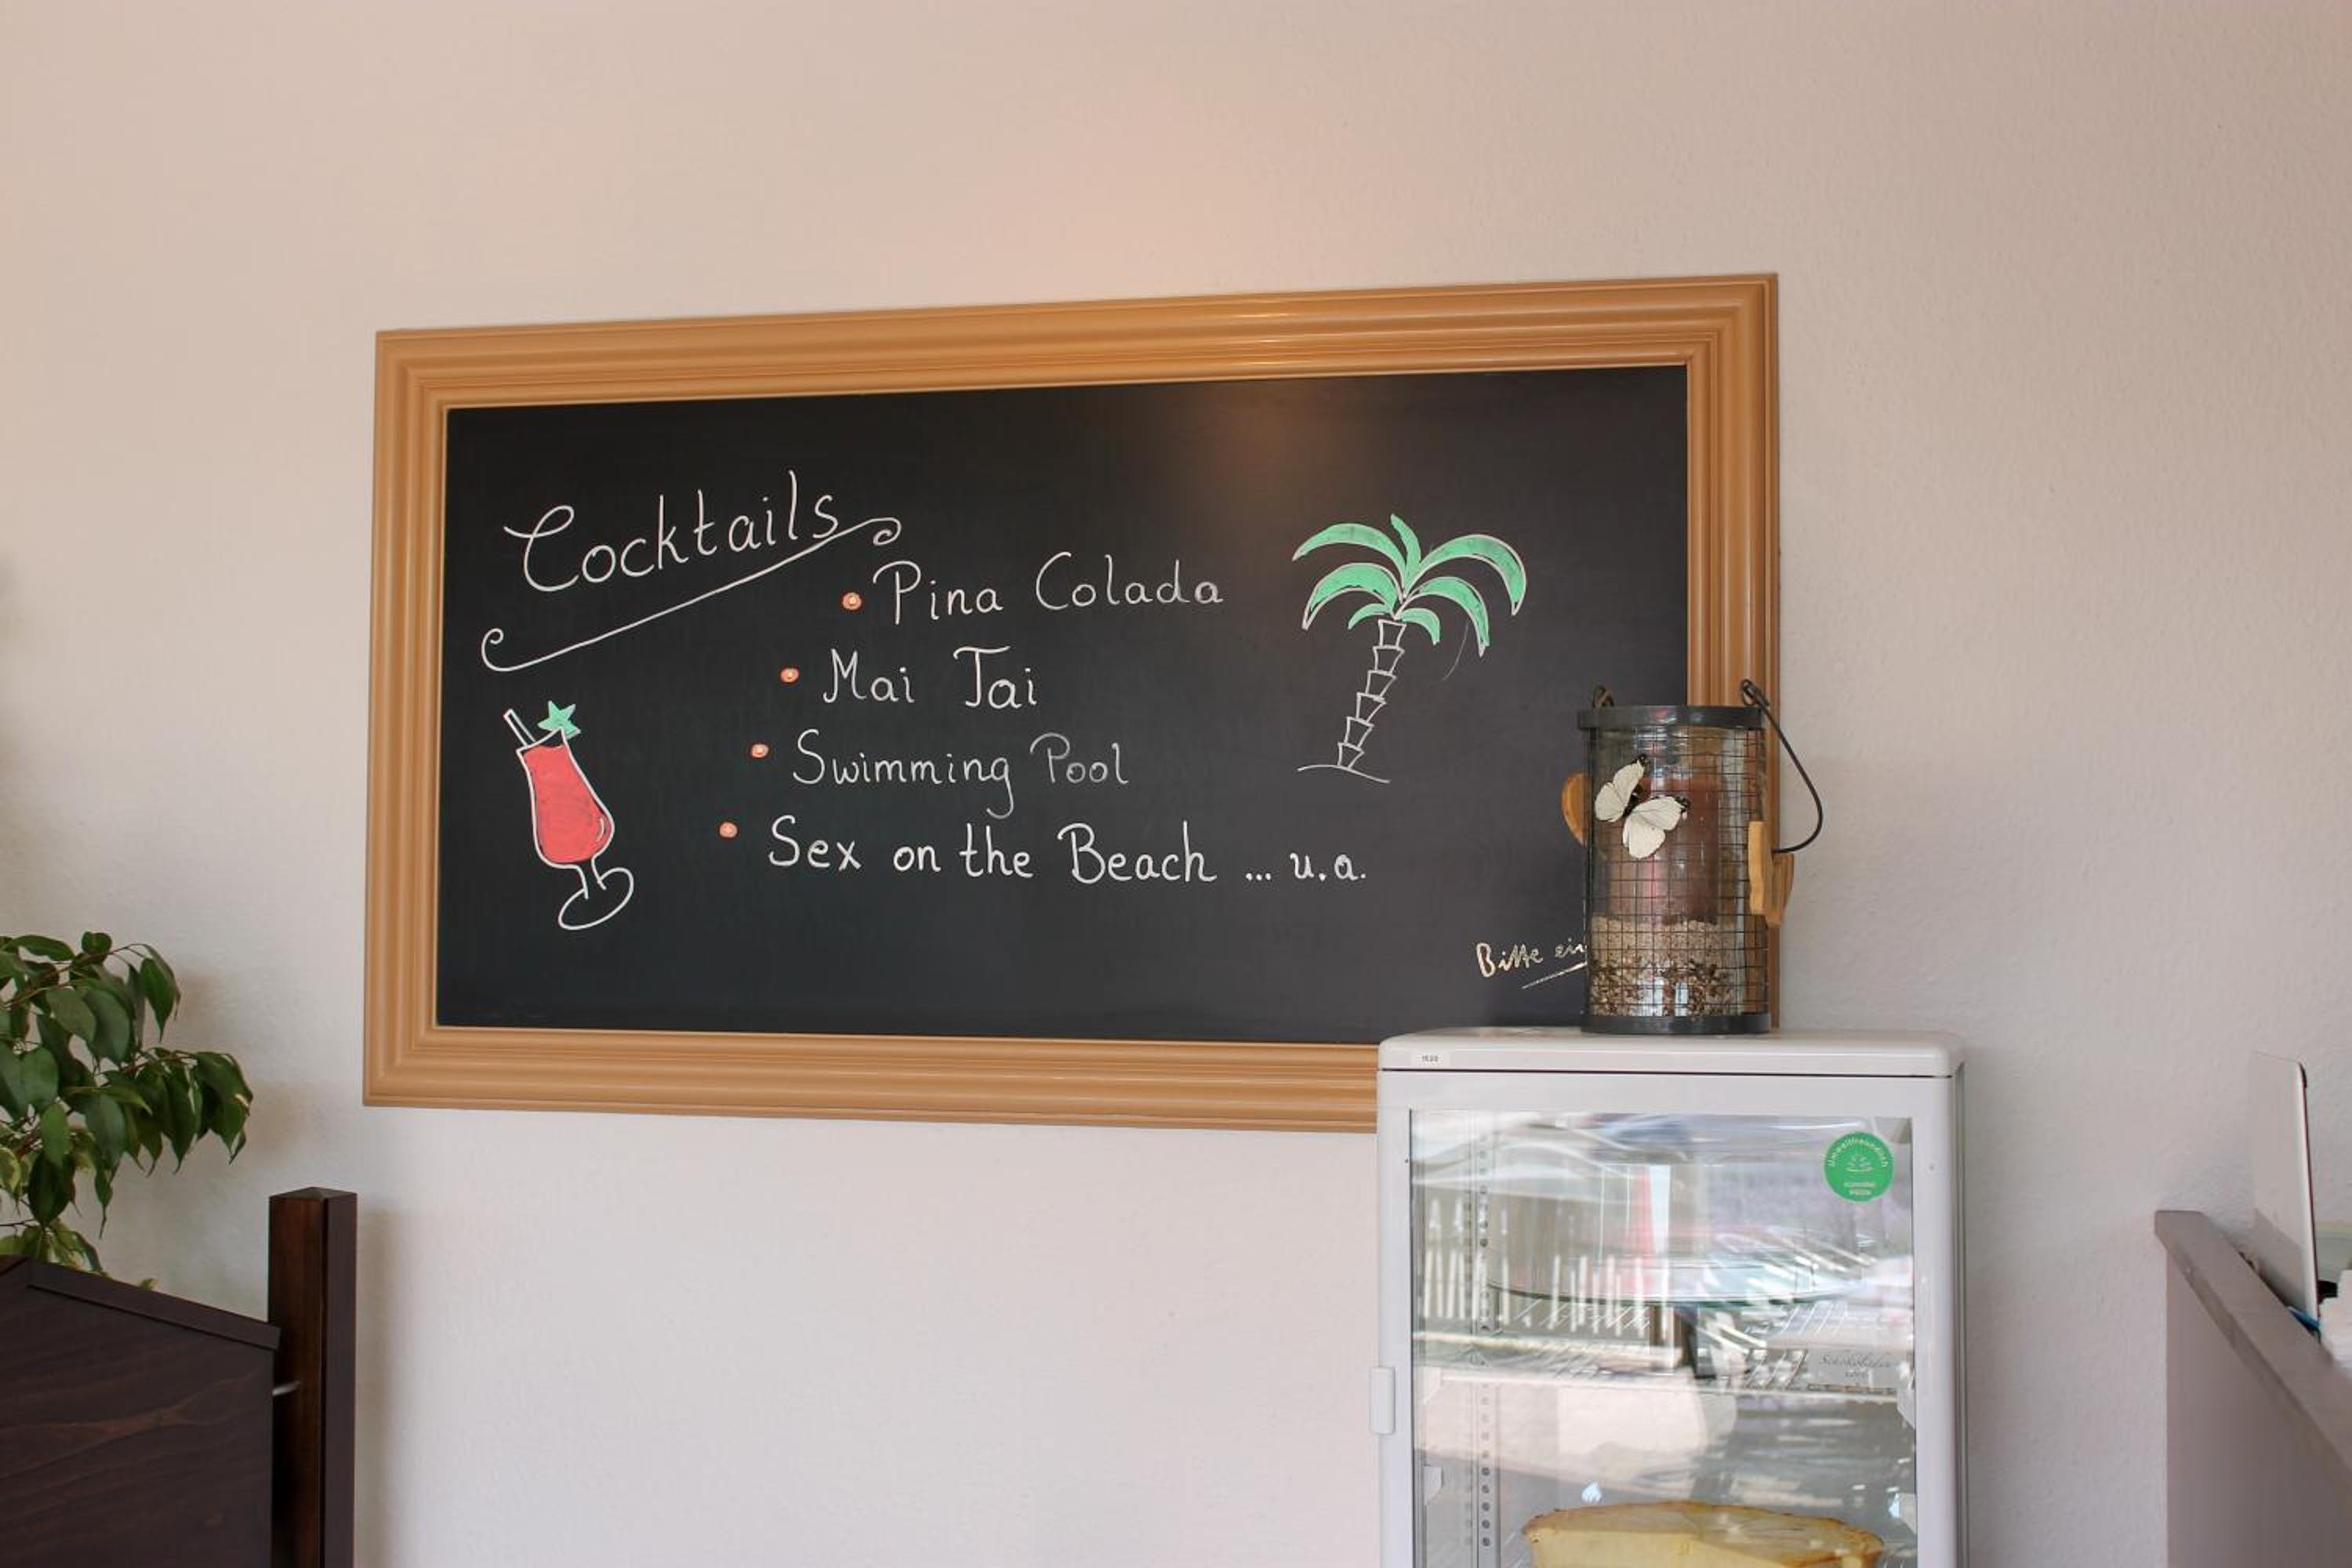 Cocktails
Pina Colada
Mai Tai
Swimming Pool
Sex on the Beach ... u.a.
Bitte
Umweltfreundlich